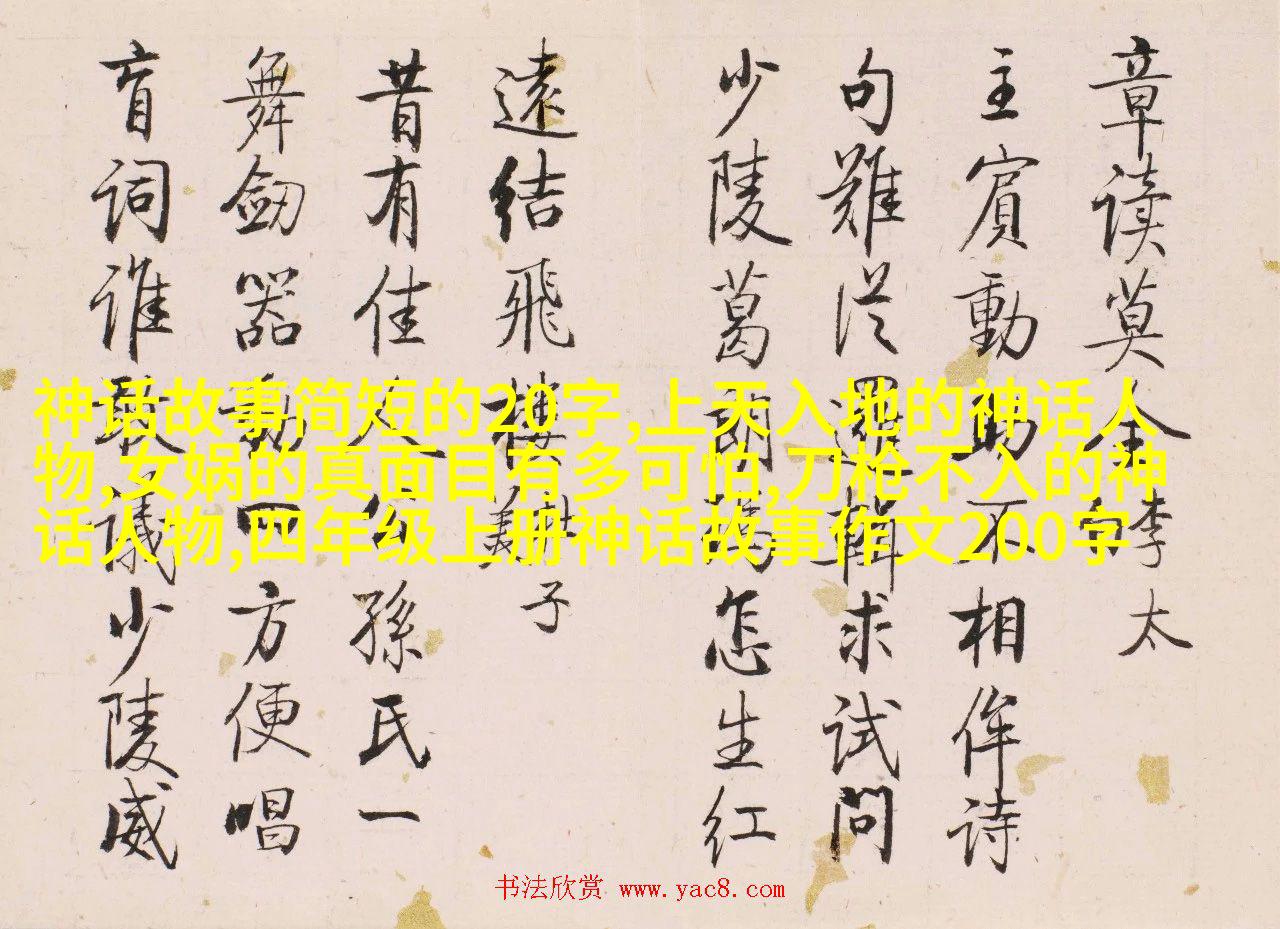 神话故事简短的20字,上天入地的神话人
物,女娲的真面目有多可怕,刀枪不入的神
话人物,四年级上册神话故事作文200字
章读莫李太
主賓動助不相侔詩
句難從求试问
少陵葛怎生红
遠结飛楼子
昔有佳人公孫氏一
舞劎器動四方便唱
盲词谁敢議少陵威
书法欣赏 www.yac8.com